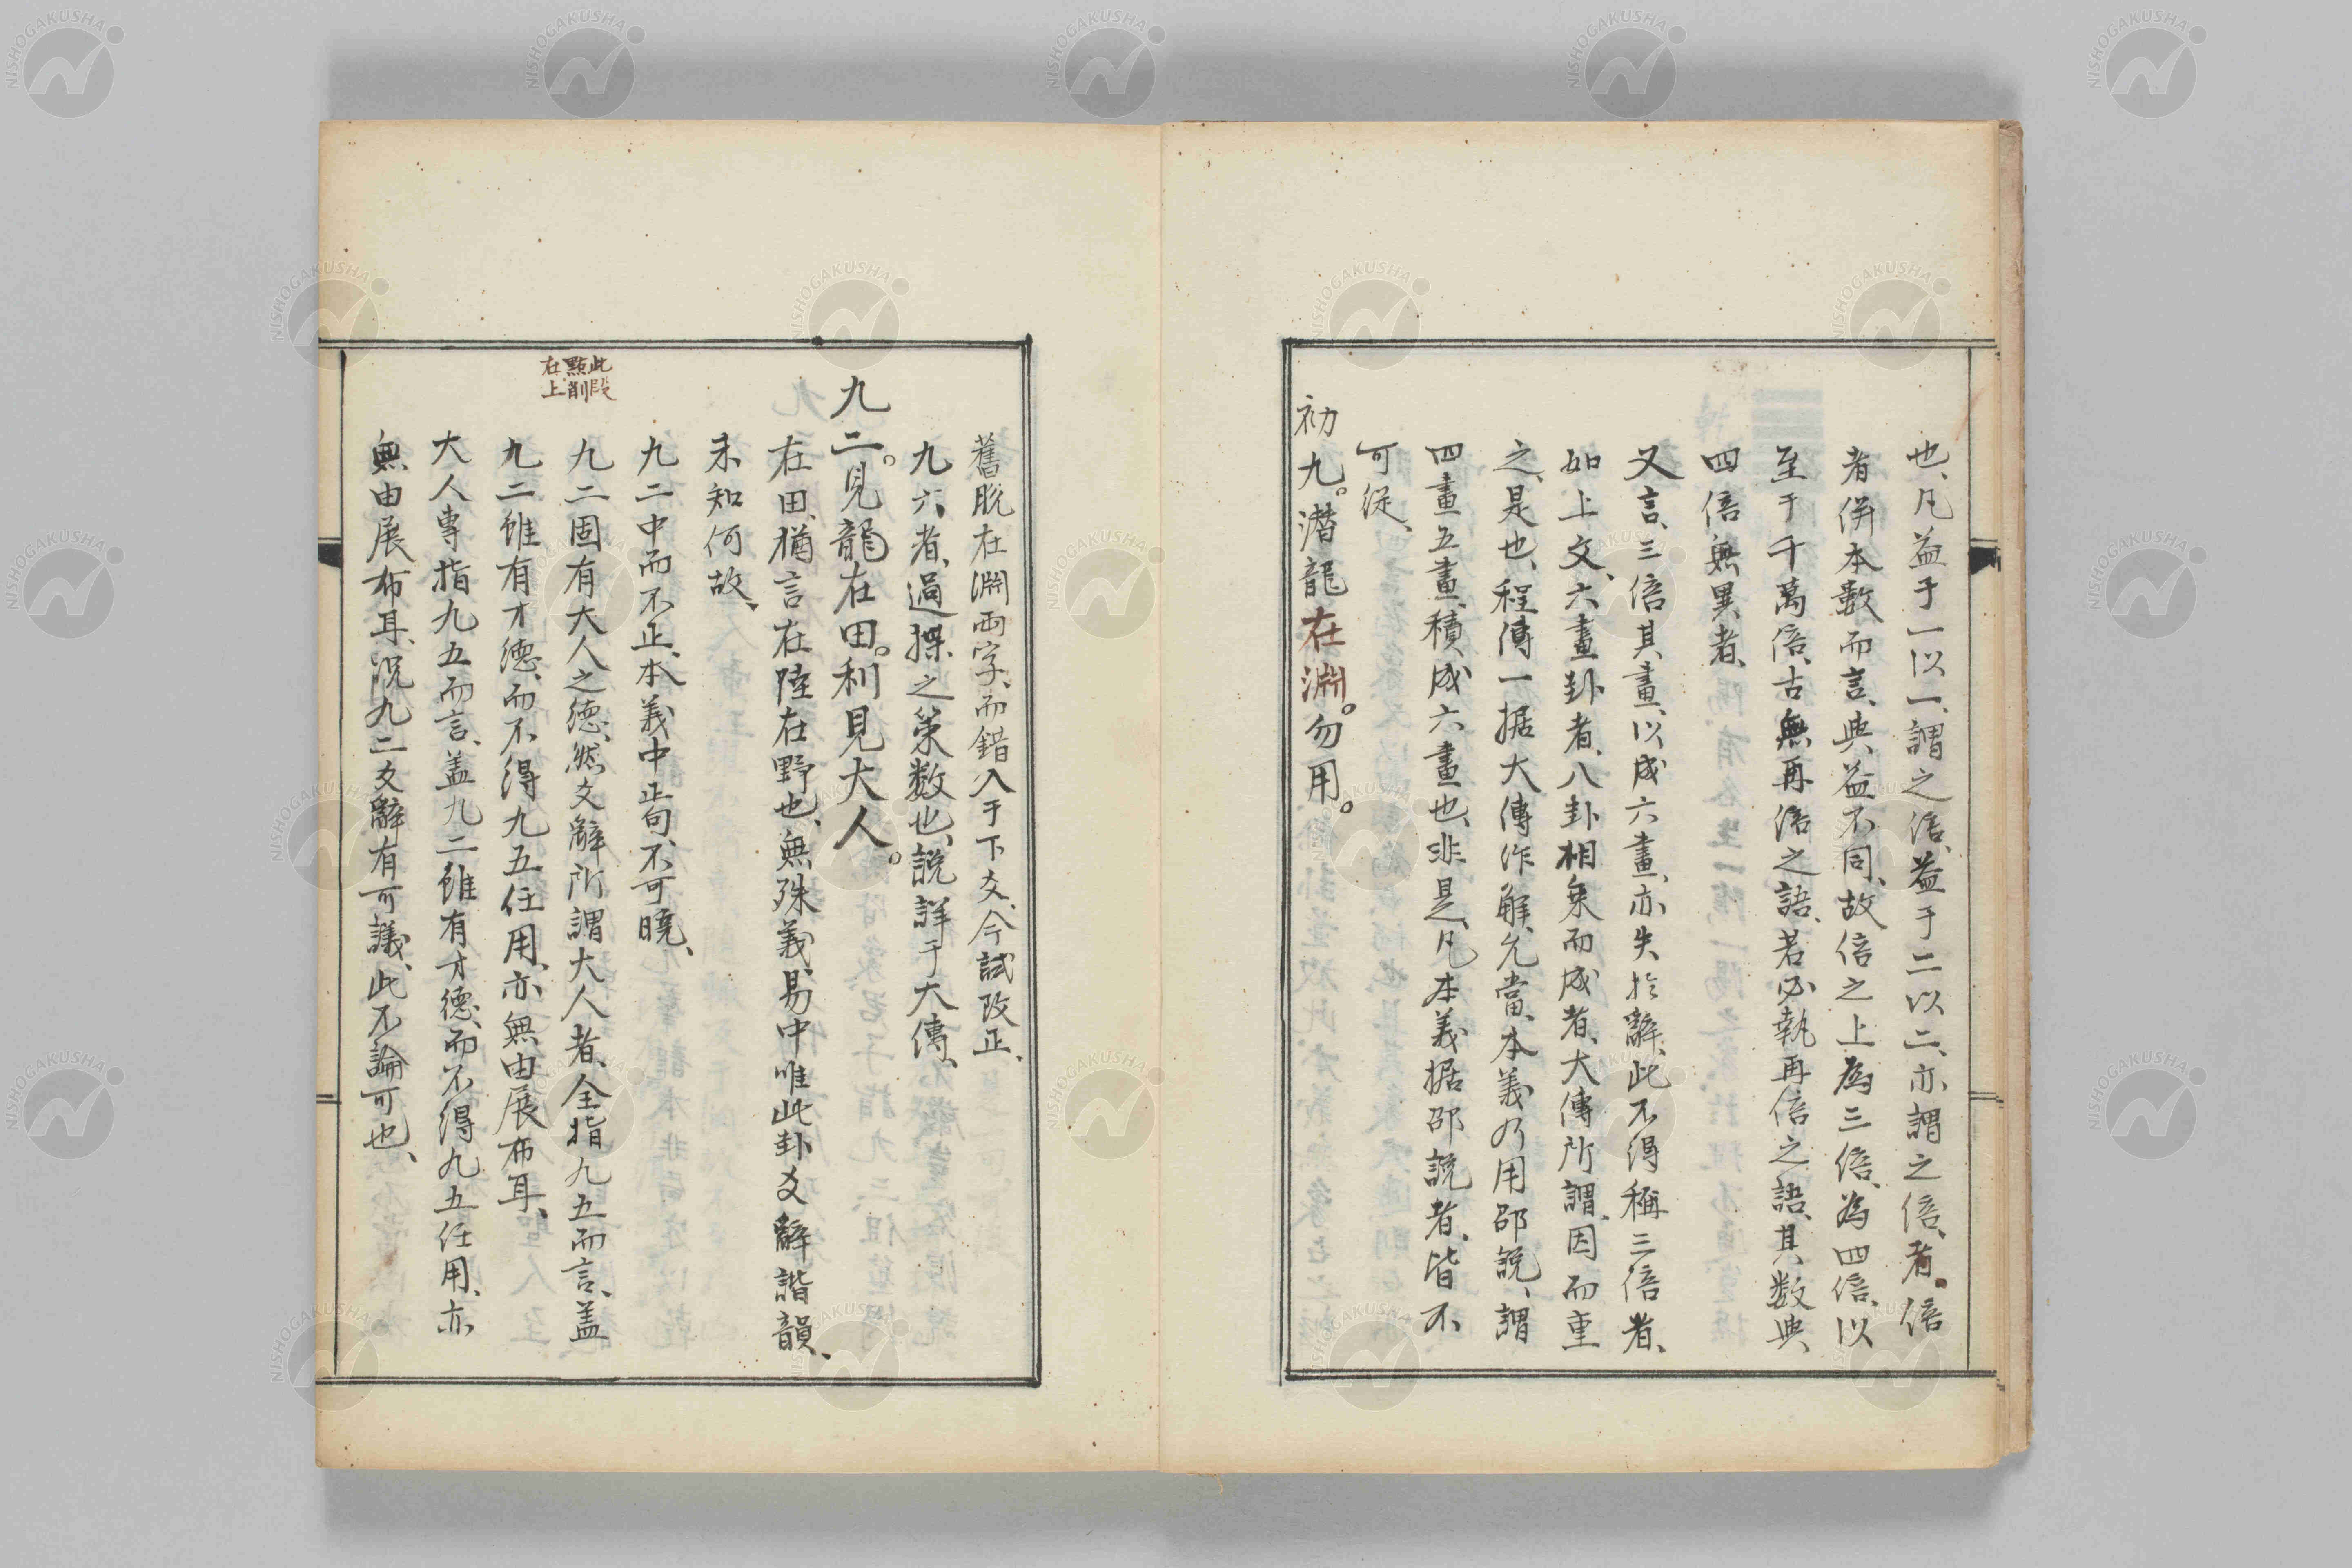 也、凡益于一以一、謂之倍、益于二以二、亦謂之倍、者。倍
者併本數而言、與益不同、故倍之上爲三倍、為四倍、以
至于千萬倍、古無再倍之語、若必執再倍之語、其数與
四倍無異者、
又言、三倍其畫、以成六畫、亦失於辭、此不得稱三倍者、
如上文、六畫卦者、八卦相乗而成者、大傳所謂、因而重
之、是也、程傳一据大傳作解、允當、本義乃用邵説、謂
四畫五畫、積成六畫也、非是、凡本義据邵説者、皆不
可從、
初九。潜龍在淵。勿用。
舊脱在淵兩字、而錯入于下爻、今試改正、
九六者、過揲之策数也、説詳于大傳、
九二。見龍在田。利見大人。
在田、猶言在陸在野也、無殊義、易中唯此卦爻辭諧韻、
未知何故、
九二中而不正、本義中正句、不可曉、
此段
點削
在上
九二固有大人之徳、然爻辭所謂大人者、全指九五而言、盖
九二雖有才徳、而不得九五任用、亦無由展布耳、
大人專指九五而言、盖九二雖有才徳、而不得九五任用、亦
無由展布耳、況九二爻辭有可議、此不論可也、